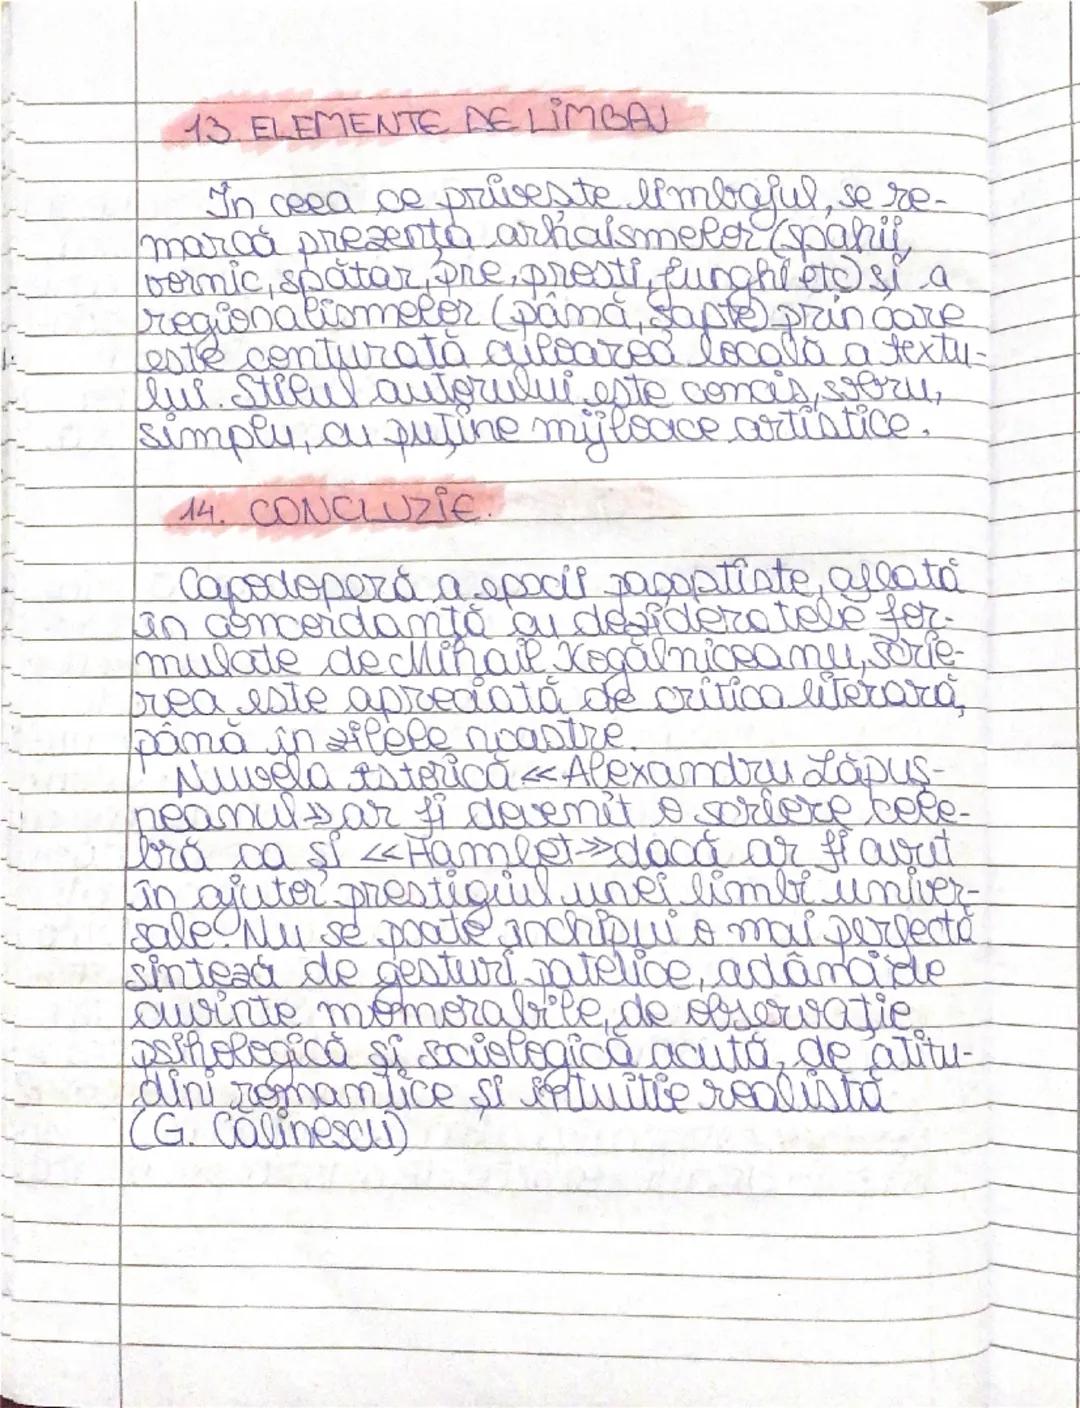 13. ELEMENTE DE LIMBAJ
În ceea ce privește limbajul, se re-
marcă prezența arhaismelor (spahii,
vornic, spătar, pre, prosti, junghi etc) și a
regionalismelor (pâmă, șapte) prin care
este conturată culoarea locală a textu-
lui. Stilul autorului este concis, sobru,
simplu, cu puține mijloace artistice.
14. CONCLUZIE.
Capodoperă a epocii pașoptiste, aflată
în concordanță cu dezideratele for-
mulate de Mihail Kogălniceanu, scrie-
rea este apreciată de critica literară,
până în zilele noastre.
Nuvela istorică «Alexandru Lăpuș-
neanul» ar fi devenit o scriere cele-
bră ca și «Hamlet» dacă ar fi avut
în ajutor prestigiul unei limbi univer-
sale. Nu se poate închipui o mai perfectă
sinteză de gesturi patetice, adânci de
cuvinte memorabile, de observație
psihologică și sociologică acută, de atitu-
dini romantice și intuiție realistă
(G. Călinescu)